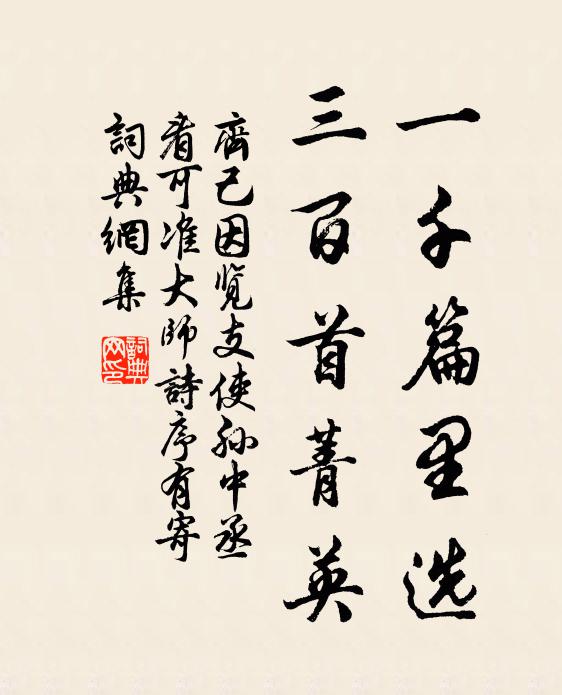 一千篇里选
三百首菁英
齊己因览支使孙中丞
看可准大师詩序有寄
詞典網集
詞典网印